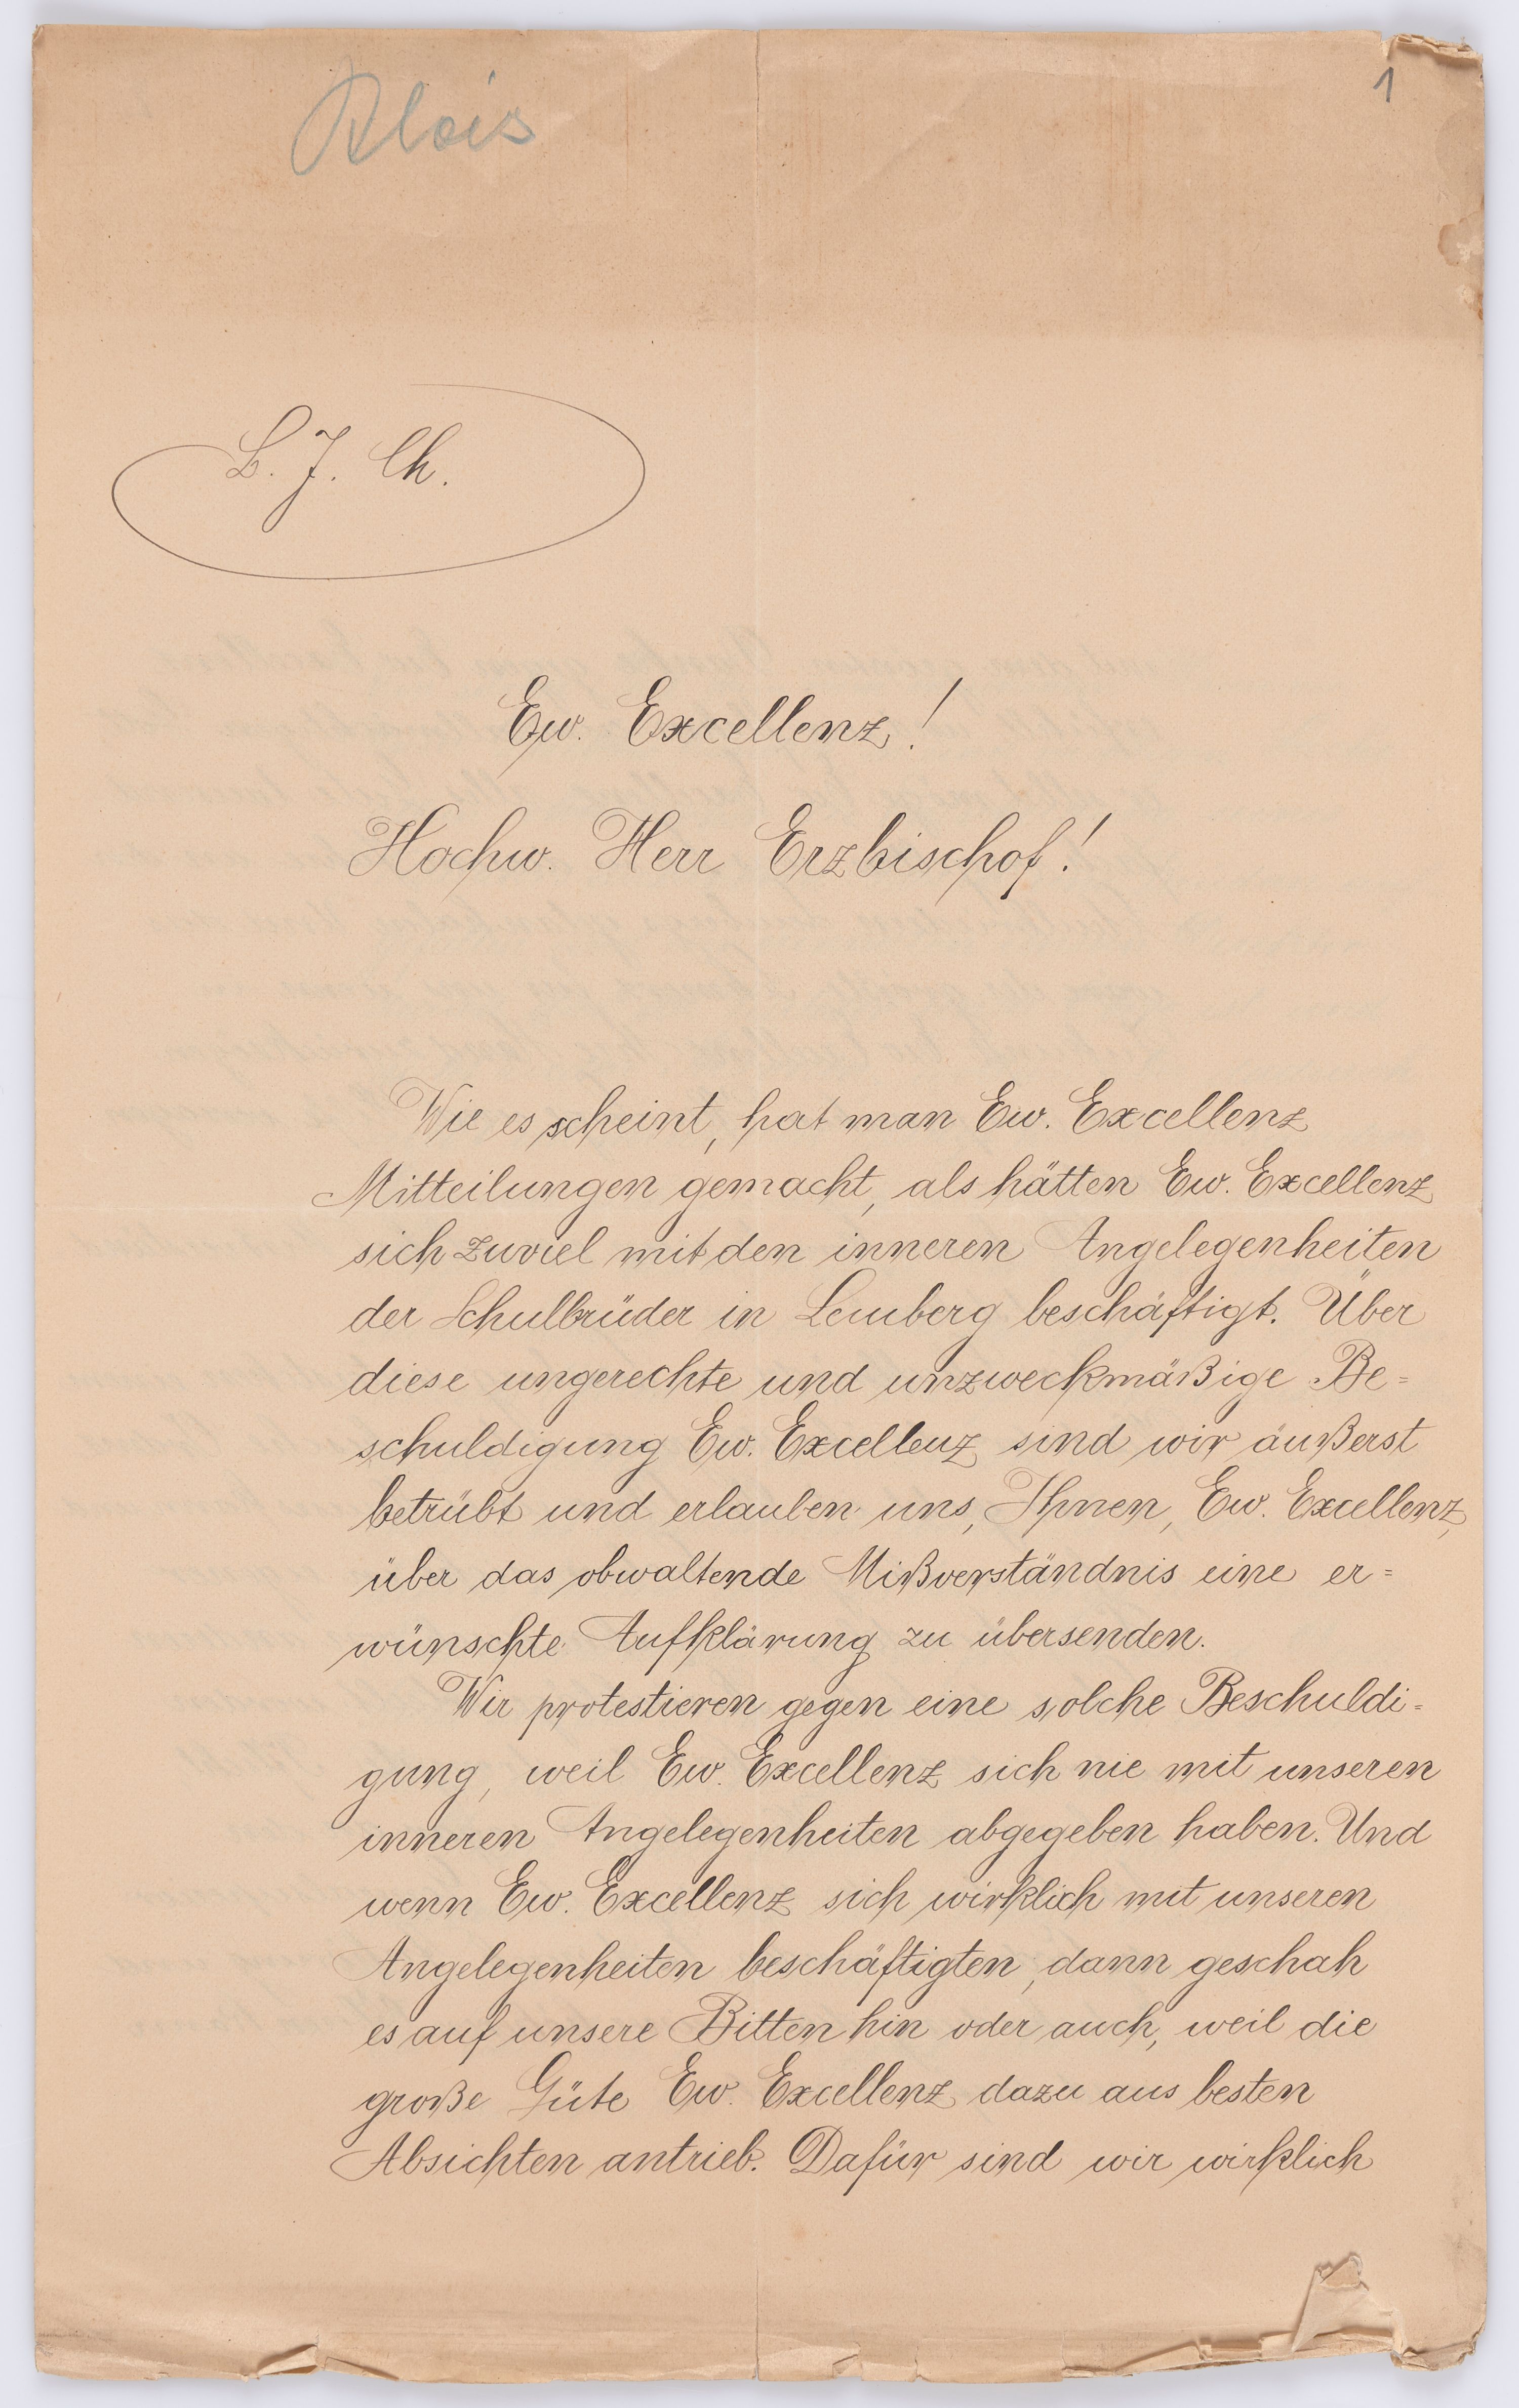 Alois
1
L. J. Ch.
Ew. Excellenz!
Hochw. Herr Erzbischof!
Wie es scheint, hat man Ew. Excellenz
Mitteilungen gemacht, als hätten Ew. Excellenz
sich zuviel mit den inneren Angelegenheiten
der Schulbrüder in Lemberg beschäftigt. Über
diese ungerechte und unzweckmäßige Be=
schuldigung Ew. Excellenz sind wir äußerst
betrübt und erlauben uns, Ihnen, Ew. Excellenz,
über das obwaltende Mißverständnis eine er=
wünschte Aufklärung zu übersenden.
Wir protestieren gegen eine solche Beschuldi=
gung, weil Ew. Excellenz sich nie mit unseren
inneren Angelegenheiten abgegeben haben. Und
wenn Ew. Excellenz sich wirklich mit unseren
Angelegenheiten beschäftigten, dann geschah
es auf unsere Bitten hin oder auch, weil die
große Güte Ew. Excellenz dazu aus besten
Absichten antrieb. Dafür sind wir wirklich